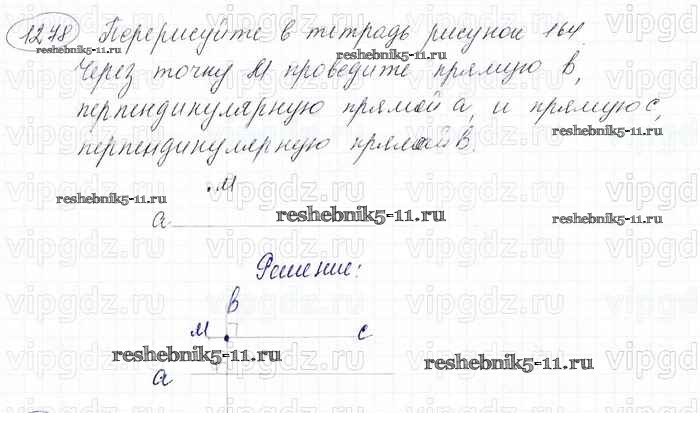 1248 Перерисуйте в тетрадь рисунок 164
reshebnik5-11.ru
Через точку М проведите прямую в,
перпендикулярную прямой а, и прямую с,
reshebnik5-11.ru
перпендикулярную прямой в.
.М
reshebnik5-11.ru
а
reshebnik5-11.ru
reshebnik5-11.ru
vipgdz.ru vipgdz.ru vipgdz.ru
Решение:
в
vipgdz.ru vipgdz.ru vipgdz.ru
М с
reshebnik5-11.ru
reshebnik5-11.ru
а